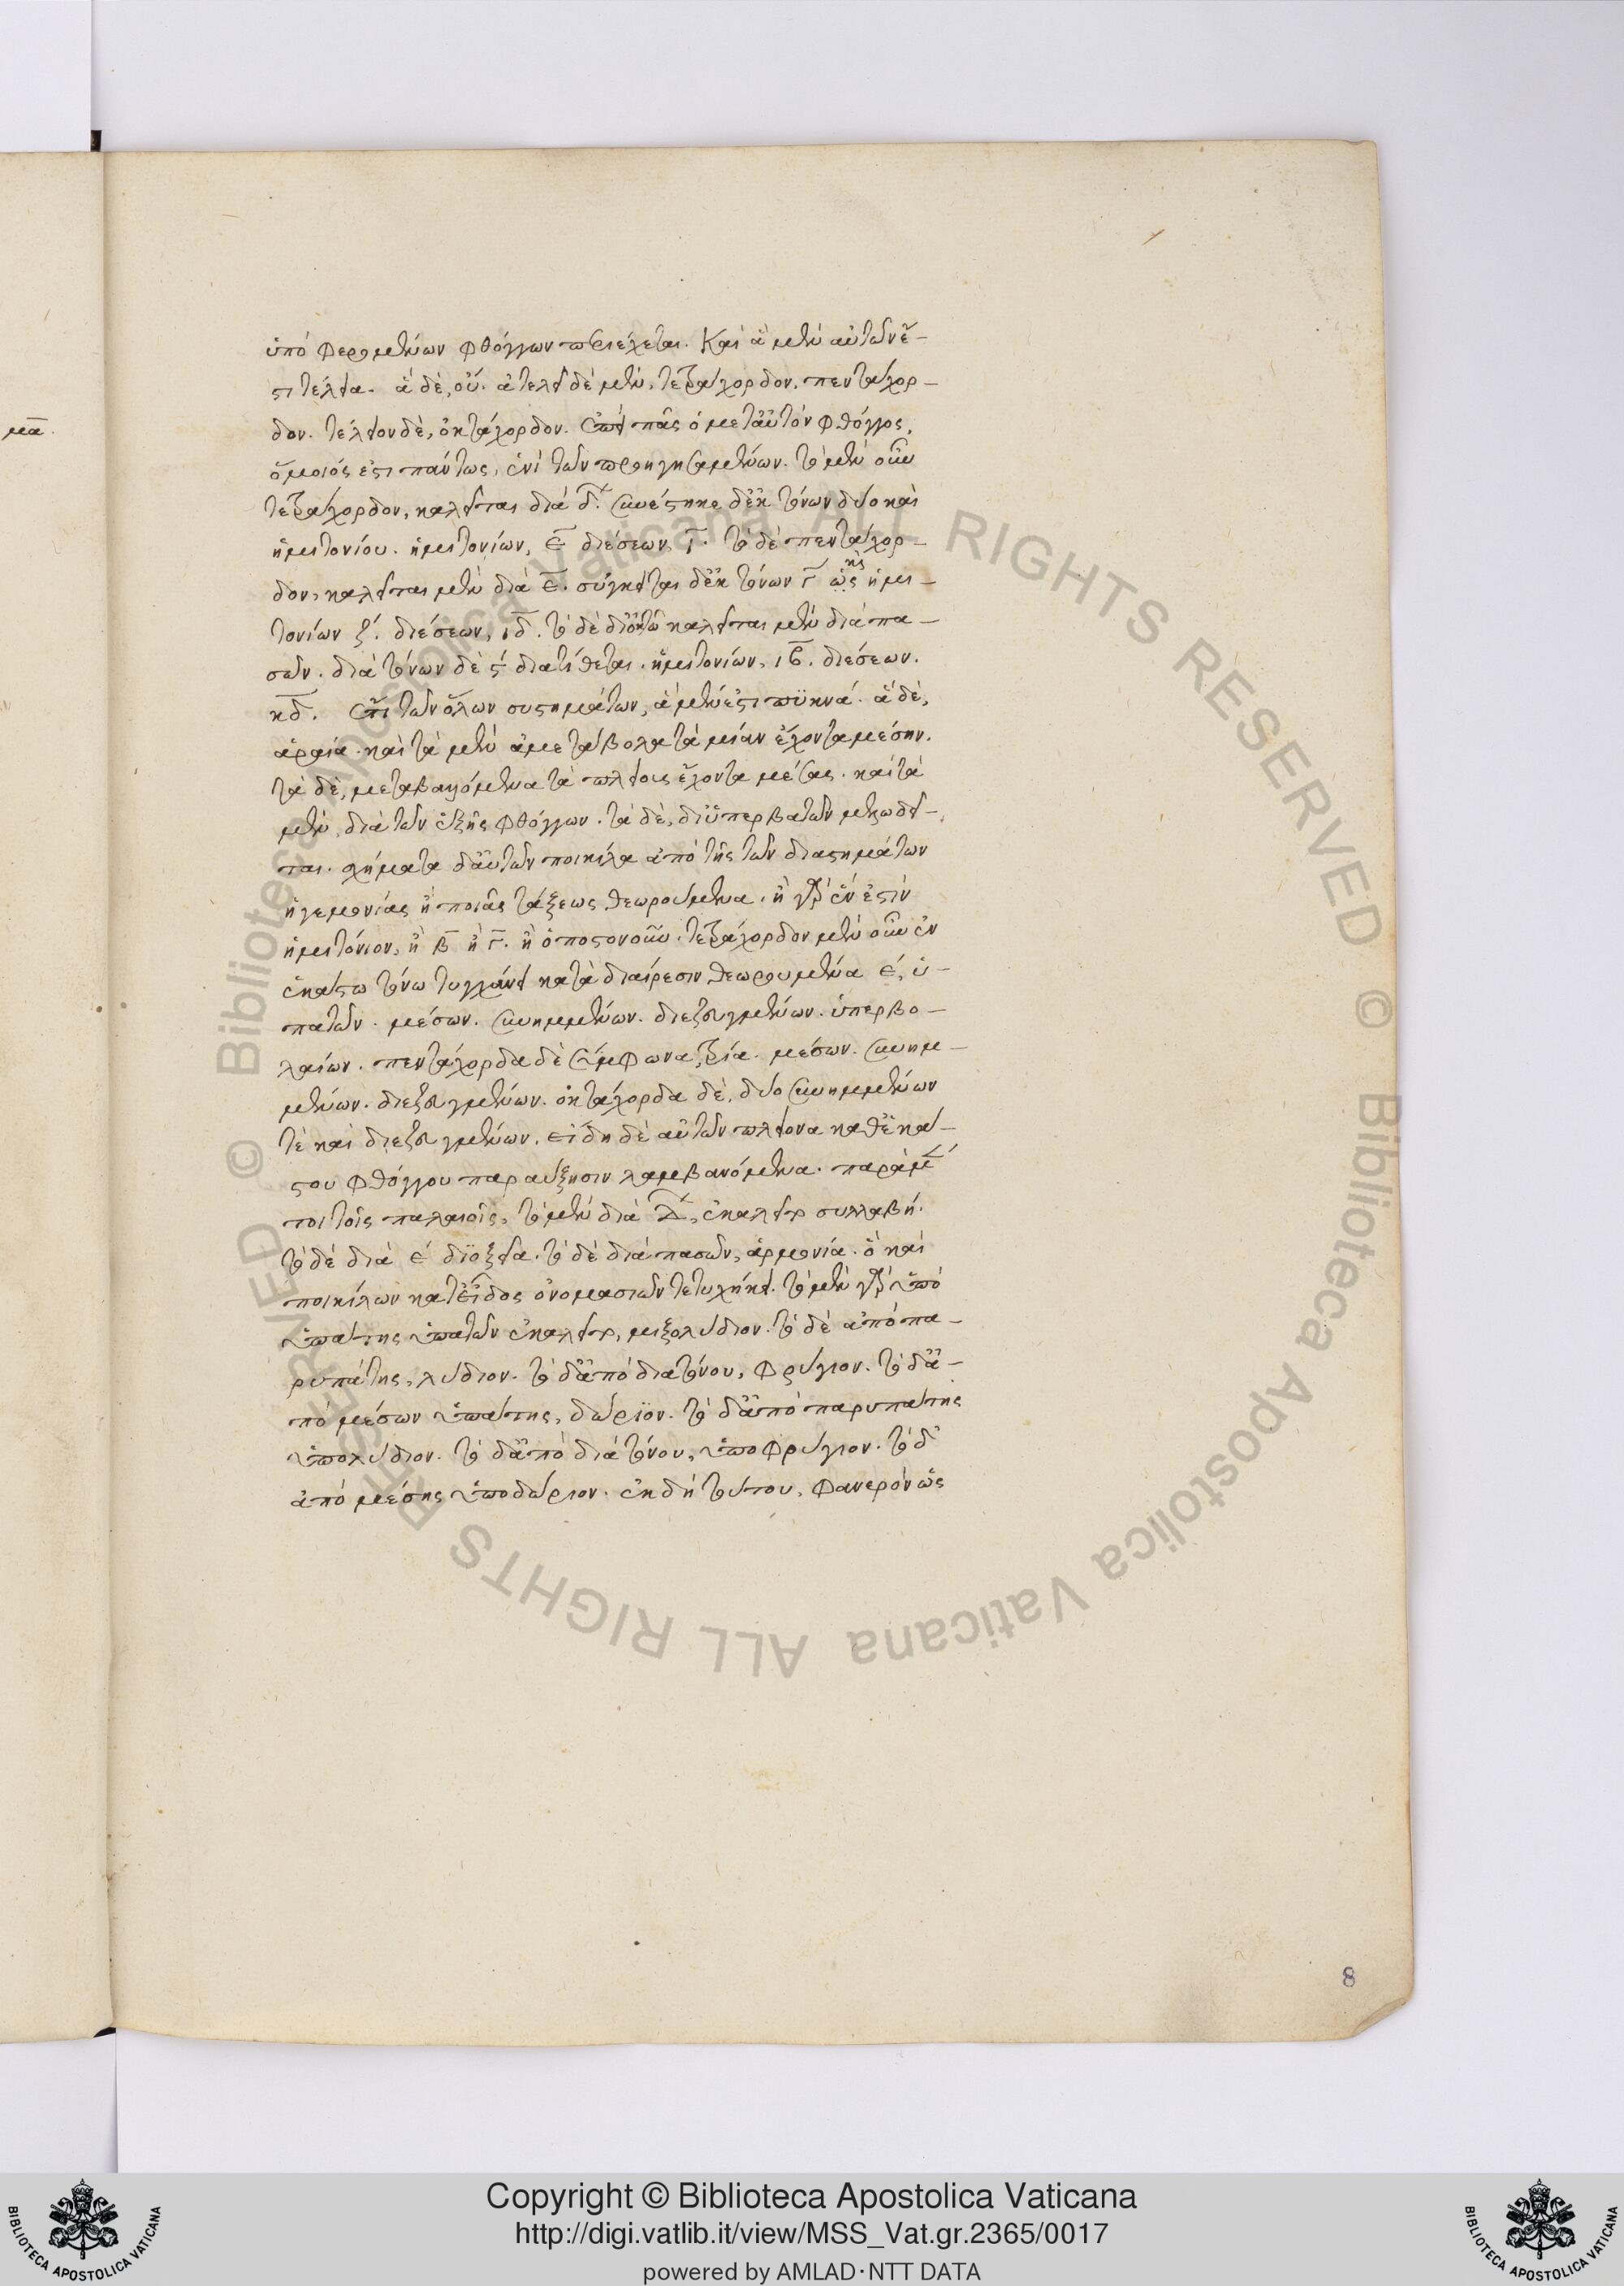 ὑπὸ φερομένων φθόγγων περιέχεται. Καὶ ἃ μὲν αὐτῶν ἐ-
στι τέλεια. ἃ δὲ, οὔ. ἀτελῆ δὲ μὲν, τετράχορδον. πεντάχορ-
δον. τέλειον δὲ, ὀκτάχορδον. ἐπεὶ πᾶς ὁ μετ' αὐτὸν φθόγγος,
ὅμοιός ἐστι πάντως, ἑνὶ τῶν προηγησαμένων. τὸ μὲν οὖν
τετράχορδον, καλεῖται διὰ δ̅. συνέστηκε δ' ἐκ τόνων δύο καὶ
ἡμιτονίου. ἡμιτονίων, ε̅ διέσεων, ι̅. τὸ δὲ πεντάχορ-
δον, καλεῖται μὲν διὰ ε̅. σύγκειται δ' ἐκ τόνων γ̅ ἡμι-
τονίων ζ́. διέσεων, ιδ̅. τὸ δὲ δι' ὀκτὼ καλεῖται μὲν διὰ πα-
σῶν. διὰ τόνων δὲ ϛ́ διατίθεται. ἡμιτονίων, ιβ̅. διέσεων.
κδ̅. ἔτι τῶν ὅλων συστημάτων, ἃ μέν ἐστι πυκνά. ἃ δὲ,
ἀραιά. καὶ τὰ μὲν ἀμετάβολα τὰ μίαν ἔχοντα μέσην.
τὰ δὲ, μεταβαλλόμενα τὰ πλείους ἔχοντα μέσας. καὶ τὰ
μὲν, διὰ τῶν ἑξῆς φθόγγων. τὰ δὲ, δι' ὑπερβατῶν μελωδεῖ-
ται. σχήματα δ' αὐτῶν ποικίλα ἀπὸ τῆς τῶν διαστημάτων
ἡγεμονίας ἢ ποιᾶς τάξεως θεωρούμενα. ἢ γὰρ ἕν ἐστιν
ἡμιτόνιον, ἢ β̅ ἢ γ̅. ἢ ὁποσονοῦν. τετράχορδον μὲν οὖν ἐν
ἑκάστῳ τόνῳ τυγχάνει κατὰ διαίρεσιν θεωρουμένα ε΄, ὑ-
πατῶν. μέσων. συνημμένων. διεζευγμένων. ὑπερβο-
λαίων. πεντάχορδα δὲ σύμφωνα, τρία. μέσων. συνημ-
μένων. διεζευγμένων. ὀκτάχορδα δὲ, δύο συνημμένων
τὲ καὶ διεζευγμένων. εἴδη δὲ αὐτῶν πλείονα καθ' ἑκά-
στου φθόγγου παραύξησιν λαμβανόμενα. παρὰ μέν
τοι τοῖς παλαιοῖς, τὸ μὲν διὰ δ̅, ἐκαλεῖτο συλλαβή.
τὸ δὲ διὰ ε΄ διοξεῖα. τὸ δὲ διὰ πασῶν, ἁρμονία. ὃ καὶ
ποικίλων κατ' εἶδος ὀνομασιῶν τετυχήκει. τὸ μὲν γὰρ ὑπὸ
ὑπάτης ὑπατῶν ἐκαλεῖτο, μιξολύδιον. τὸ δὲ ἀπὸ πα-
ρυπάτης, λύδιον. τὸ δ' ἀπὸ διατόνου, φρύγιον. τὸ δ' ἀ-
πὸ μέσων ὑπάτης, δώριον. τὸ δ' ἀπὸ παρυπάτης
ὑπολύδιον. τὸ δ' ἀπὸ διατόνου, ὑποφρύγιον. τὸ δ'
ἀπὸ μέσης ὑποδώριον. ἐκ δὴ τούτου, φανερὸν ὡς
8
Copyright © Biblioteca Apostolica Vaticana
http://digi.vatlib.it/view/MSS_Vat.gr.2365/0017
powered by AMLAD·NTT DATA